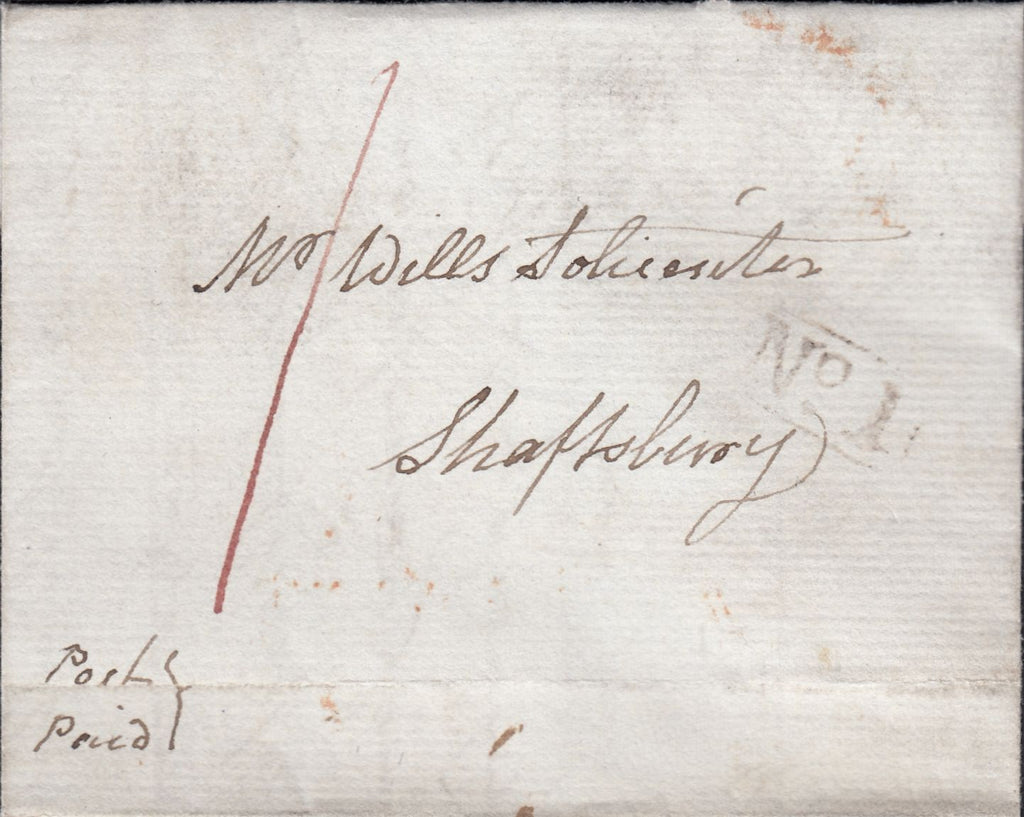 Mr Wills Solicenter
No 1.
Shaftsbury
Post
Paid
1